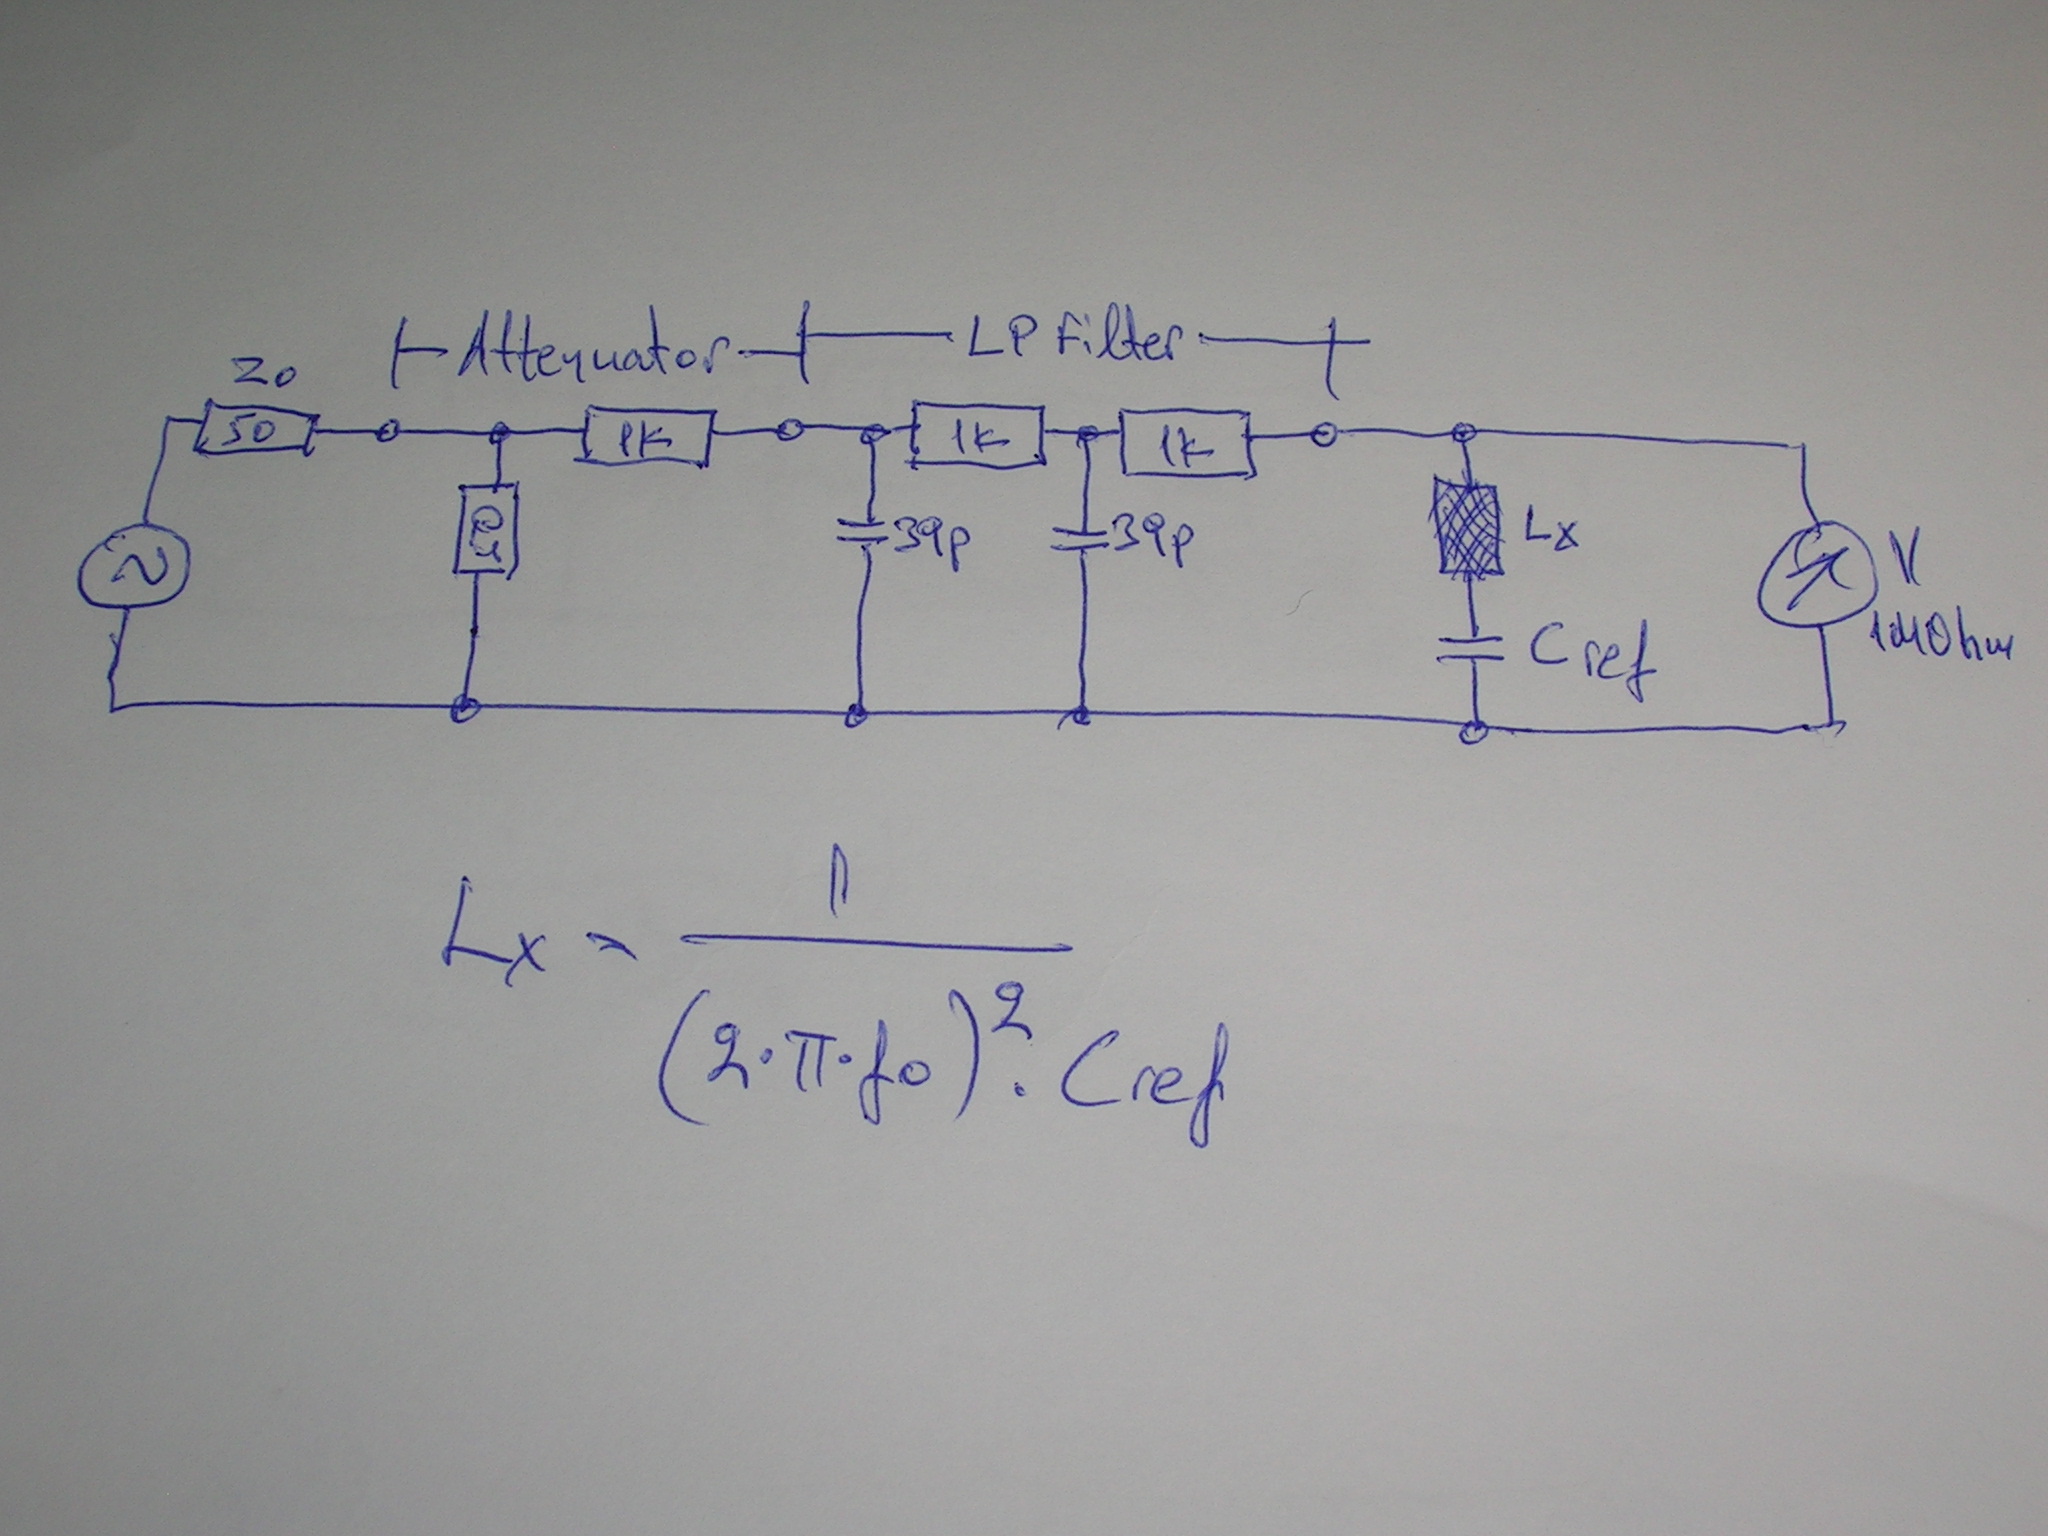 Attenuator LP Filter
Zo
50 1K 1K 1K
39p 39p Lx V
Cref 1MOhm
Lx = 1
(2·π·fo)² · Cref